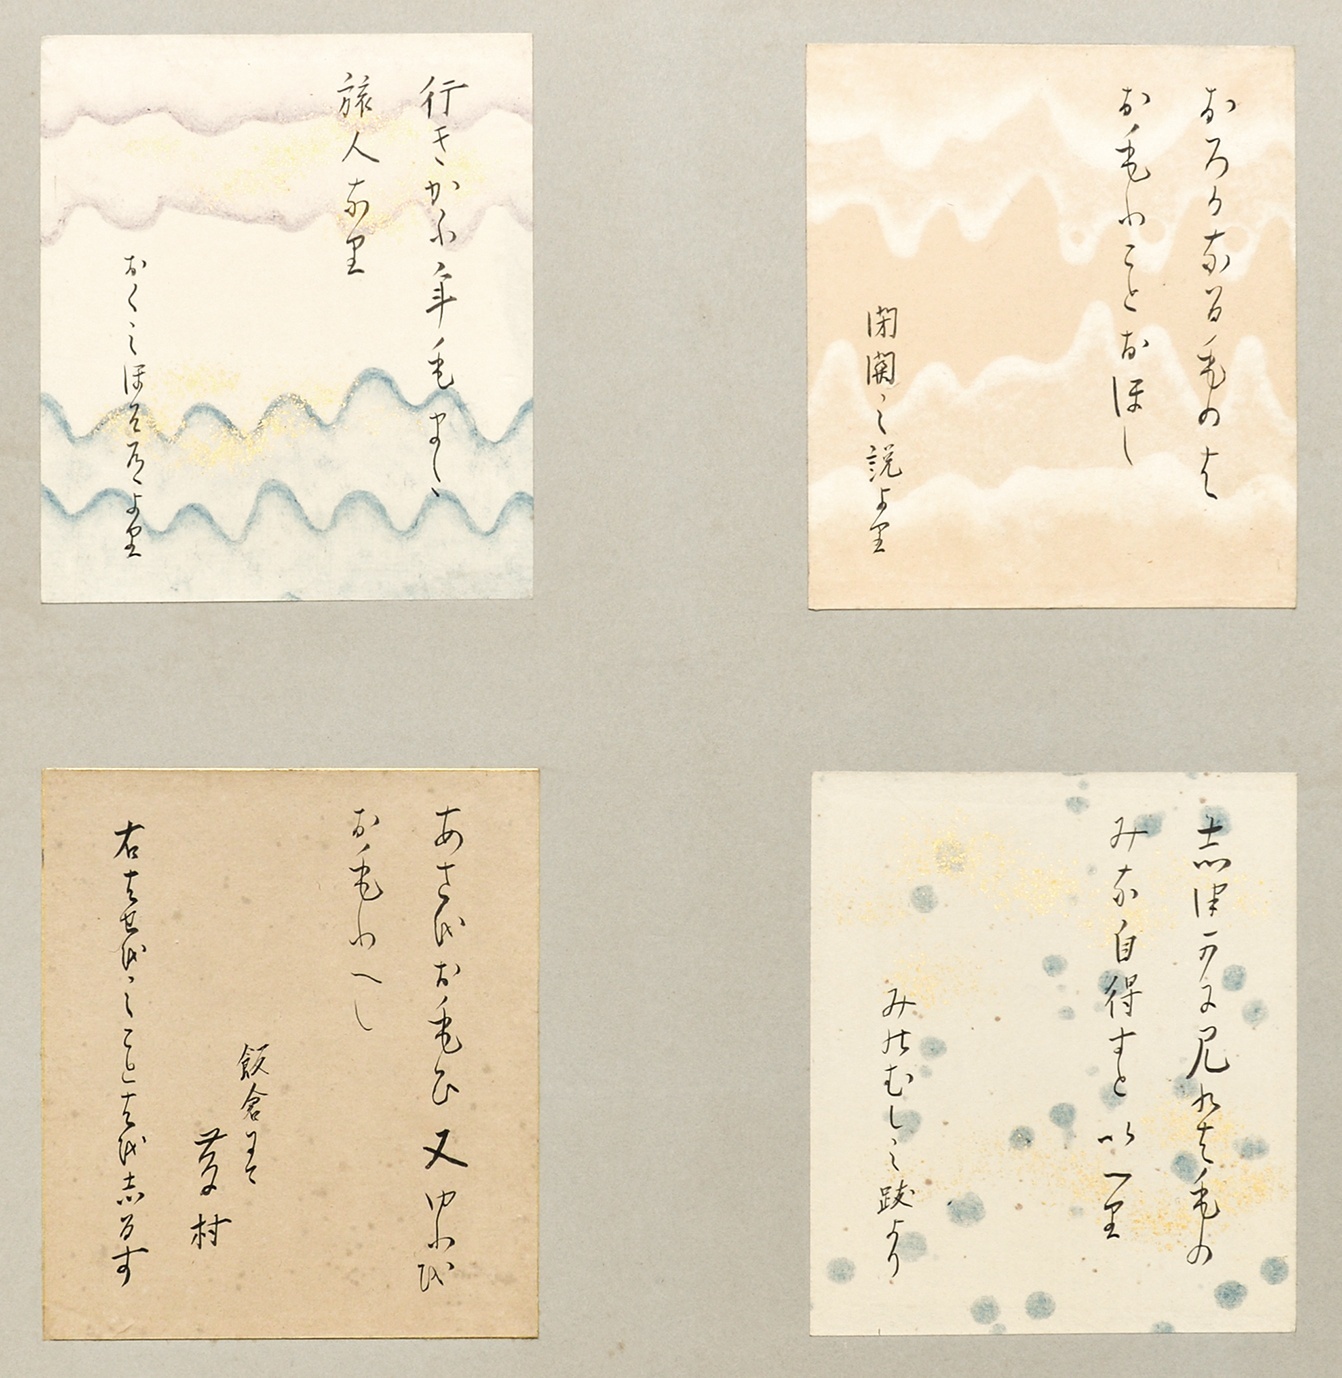 おろかなるものは
おもふことおほし
閉関之説より
行きかふ年もまた
旅人なり
おくのほそ道より
しつかに見れはもの
みな自得すといへり
みのむしの跋より
あさをおもひ又ゆふを
おもふへし
飯倉にて
藤村
右はせをのことはをしるす